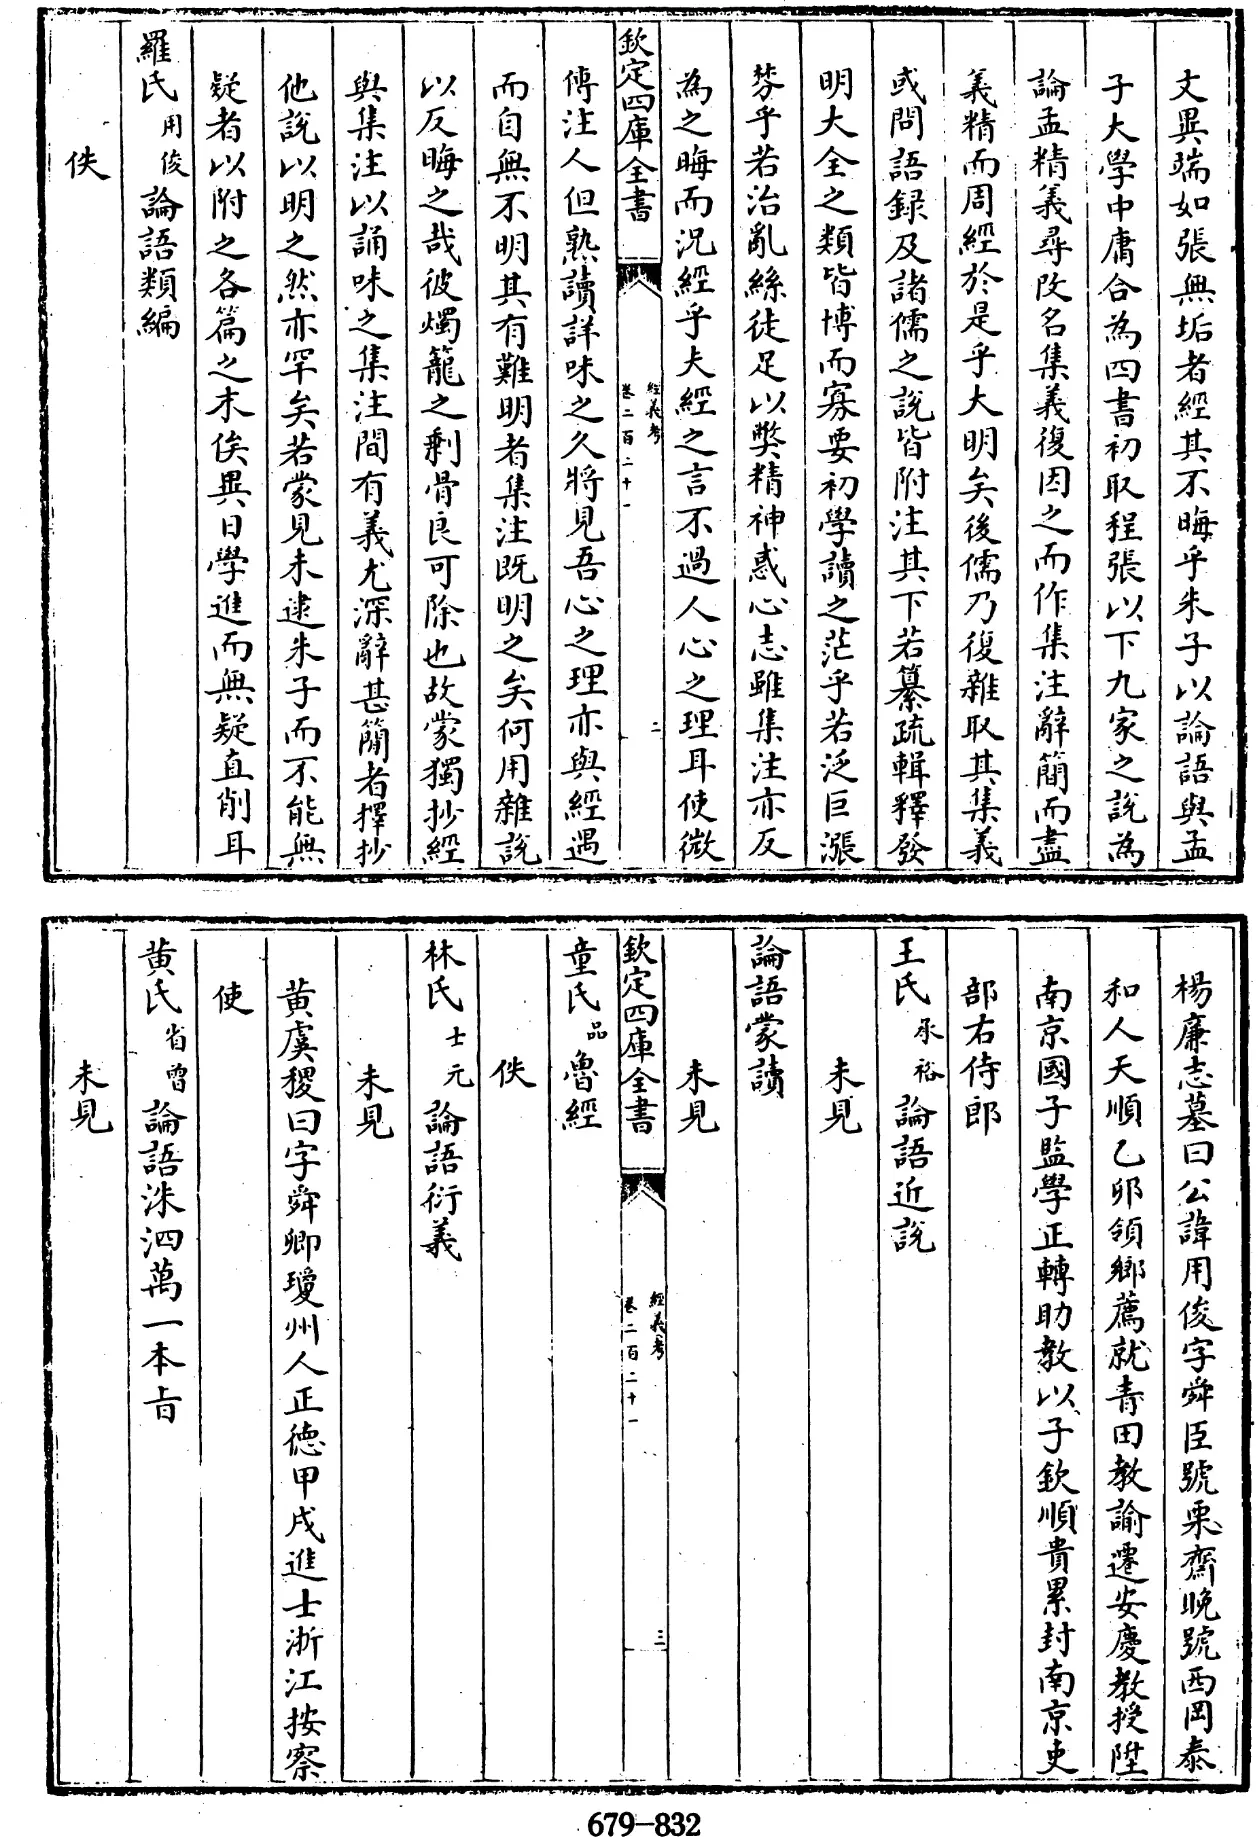 文異端如張無垢者經其不晦乎朱子以論語與孟
子大學中庸合為四書初取程張以下九家之說為
論孟精義尋改名集義復因之而作集注辭簡而盡
義精而周經於是乎大明矣後儒乃復雜取其集義
或問語録及諸儒之說皆附注其下若纂疏輯釋發
明大全之類皆博而寡要初學讀之茫乎若泛巨漲
棼乎若治亂絲徒足以獘精神惑心志雖集注亦反
為之晦而況經乎夫經之言不過人心之理耳使微
欽定四庫全書
經義考
卷二百二十一
二
傳注人但熟讀詳味之久將見吾心之理亦與經遇
而自無不明其有難明者集注既明之矣何用雜說
以反晦之哉彼燭籠之剩骨良可除也故蒙獨抄經
與集注以誦味之集注間有義尤深辭甚簡者擇抄
他說以明之然亦罕矣若蒙見未逮朱子而不能無
疑者以附之各篇之末俟異日學進而無疑直削耳
羅氏用俊論語類編
佚
楊廉志墓曰公諱用俊字舜臣號栗齋晚號西岡泰
和人天順乙卯領鄉薦就青田教諭遷安慶教授陞
南京國子監學正轉助教以子欽順貴累封南京吏
部右侍郎
王氏承裕論語近說
未見
論語蒙讀
未見
欽定四庫全書
經義考
卷二百二十一
三
童氏品魯經
佚
林氏士元論語衍義
未見
黃虞稷曰字舜卿瓊州人正德甲戌進士浙江按察
使
黃氏省曾論語洙泗萬一本旨
未見
679-832